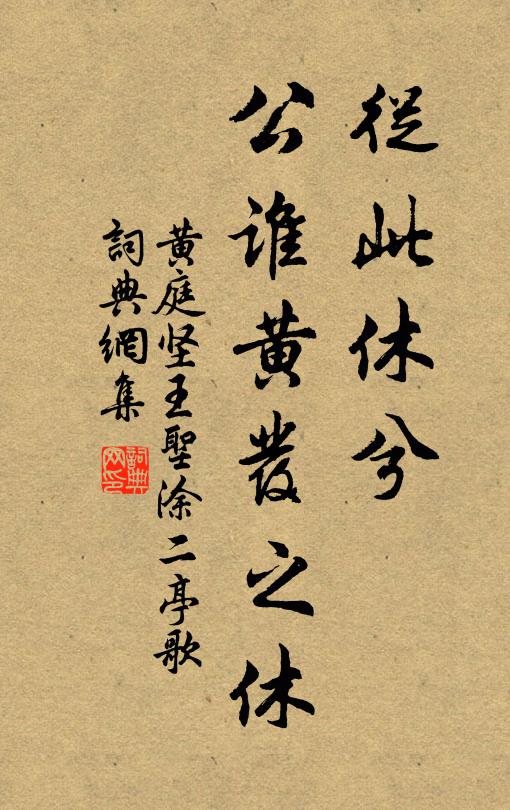 從此休兮
公誰黃發之休
黃庭坚王聖涂二亭歌
詞典網集
詞典
网印